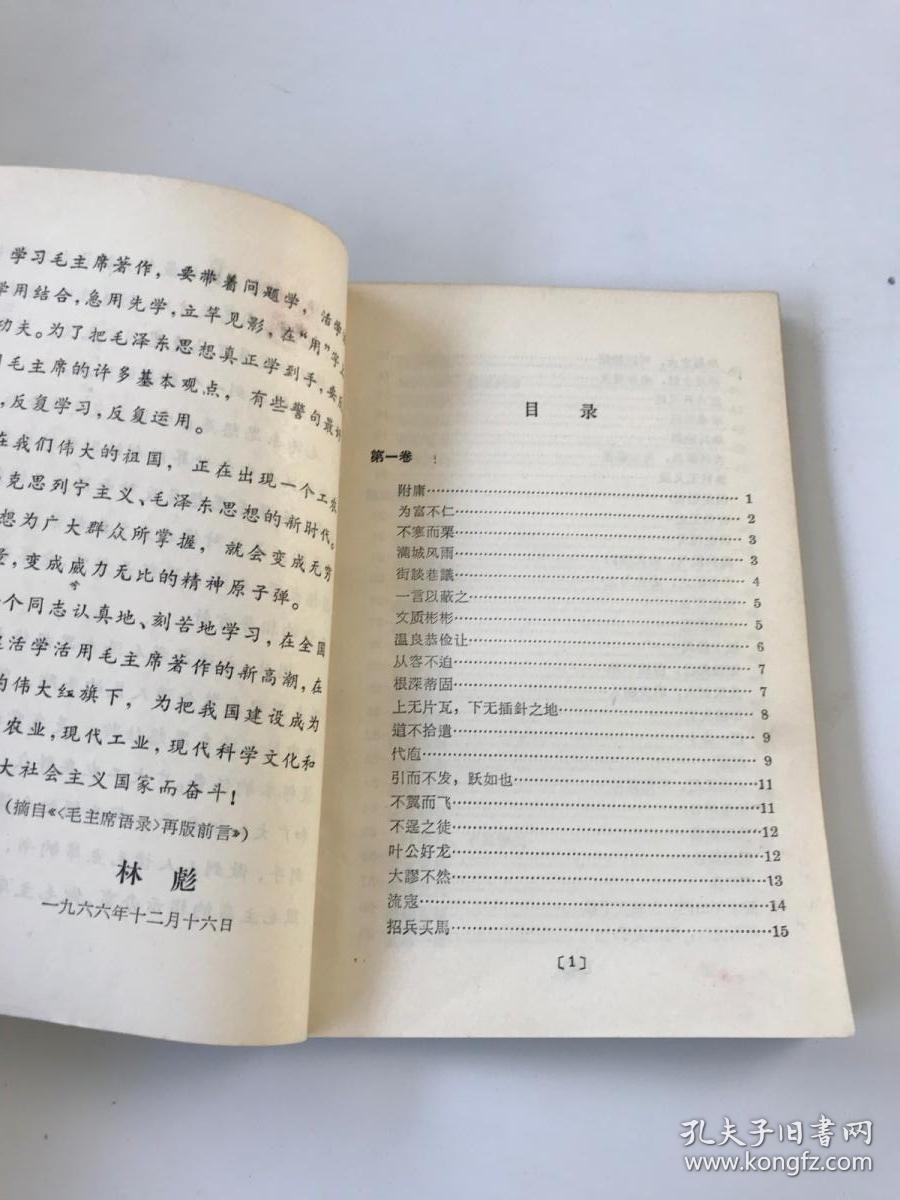 学习毛主席著作，要带着问题学，活学
学用结合，急用先学，立竿见影，在“用”字
功夫。为了把毛泽东思想真正学到手，要
毛主席的许多基本观点，有些警句最
，反复学习，反复运用。
在我们伟大的祖国，正在出现一个工农
克思列宁主义、毛泽东思想的新时代。
想为广大群众所掌握，就会变成无穷
，变成威力无比的精神原子弹。
个同志认真地、刻苦地学习，在全国
活学活用毛主席著作的新高潮，在
的伟大红旗下，为把我国建设成为
农业，现代工业，现代科学文化和
大社会主义国家而奋斗！
（摘自《〈毛主席语录〉再版前言》）
林彪
一九六六年十二月十六日
目录
第一卷
附庸……1
为富不仁……2
不寒而栗……3
满城风雨……3
街談巷議……4
一言以蔽之……5
文质彬彬……5
温良恭俭让……6
从容不迫……7
根深蒂固……7
上无片瓦，下无插針之地……8
道不拾遺……9
代庖……9
引而不发，跃如也……11
不翼而飞……11
不逞之徒……12
叶公好龙……12
大謬不然……13
流寇……14
招兵买馬……15
〔1〕
孔夫子旧書网
www.kongfz.com